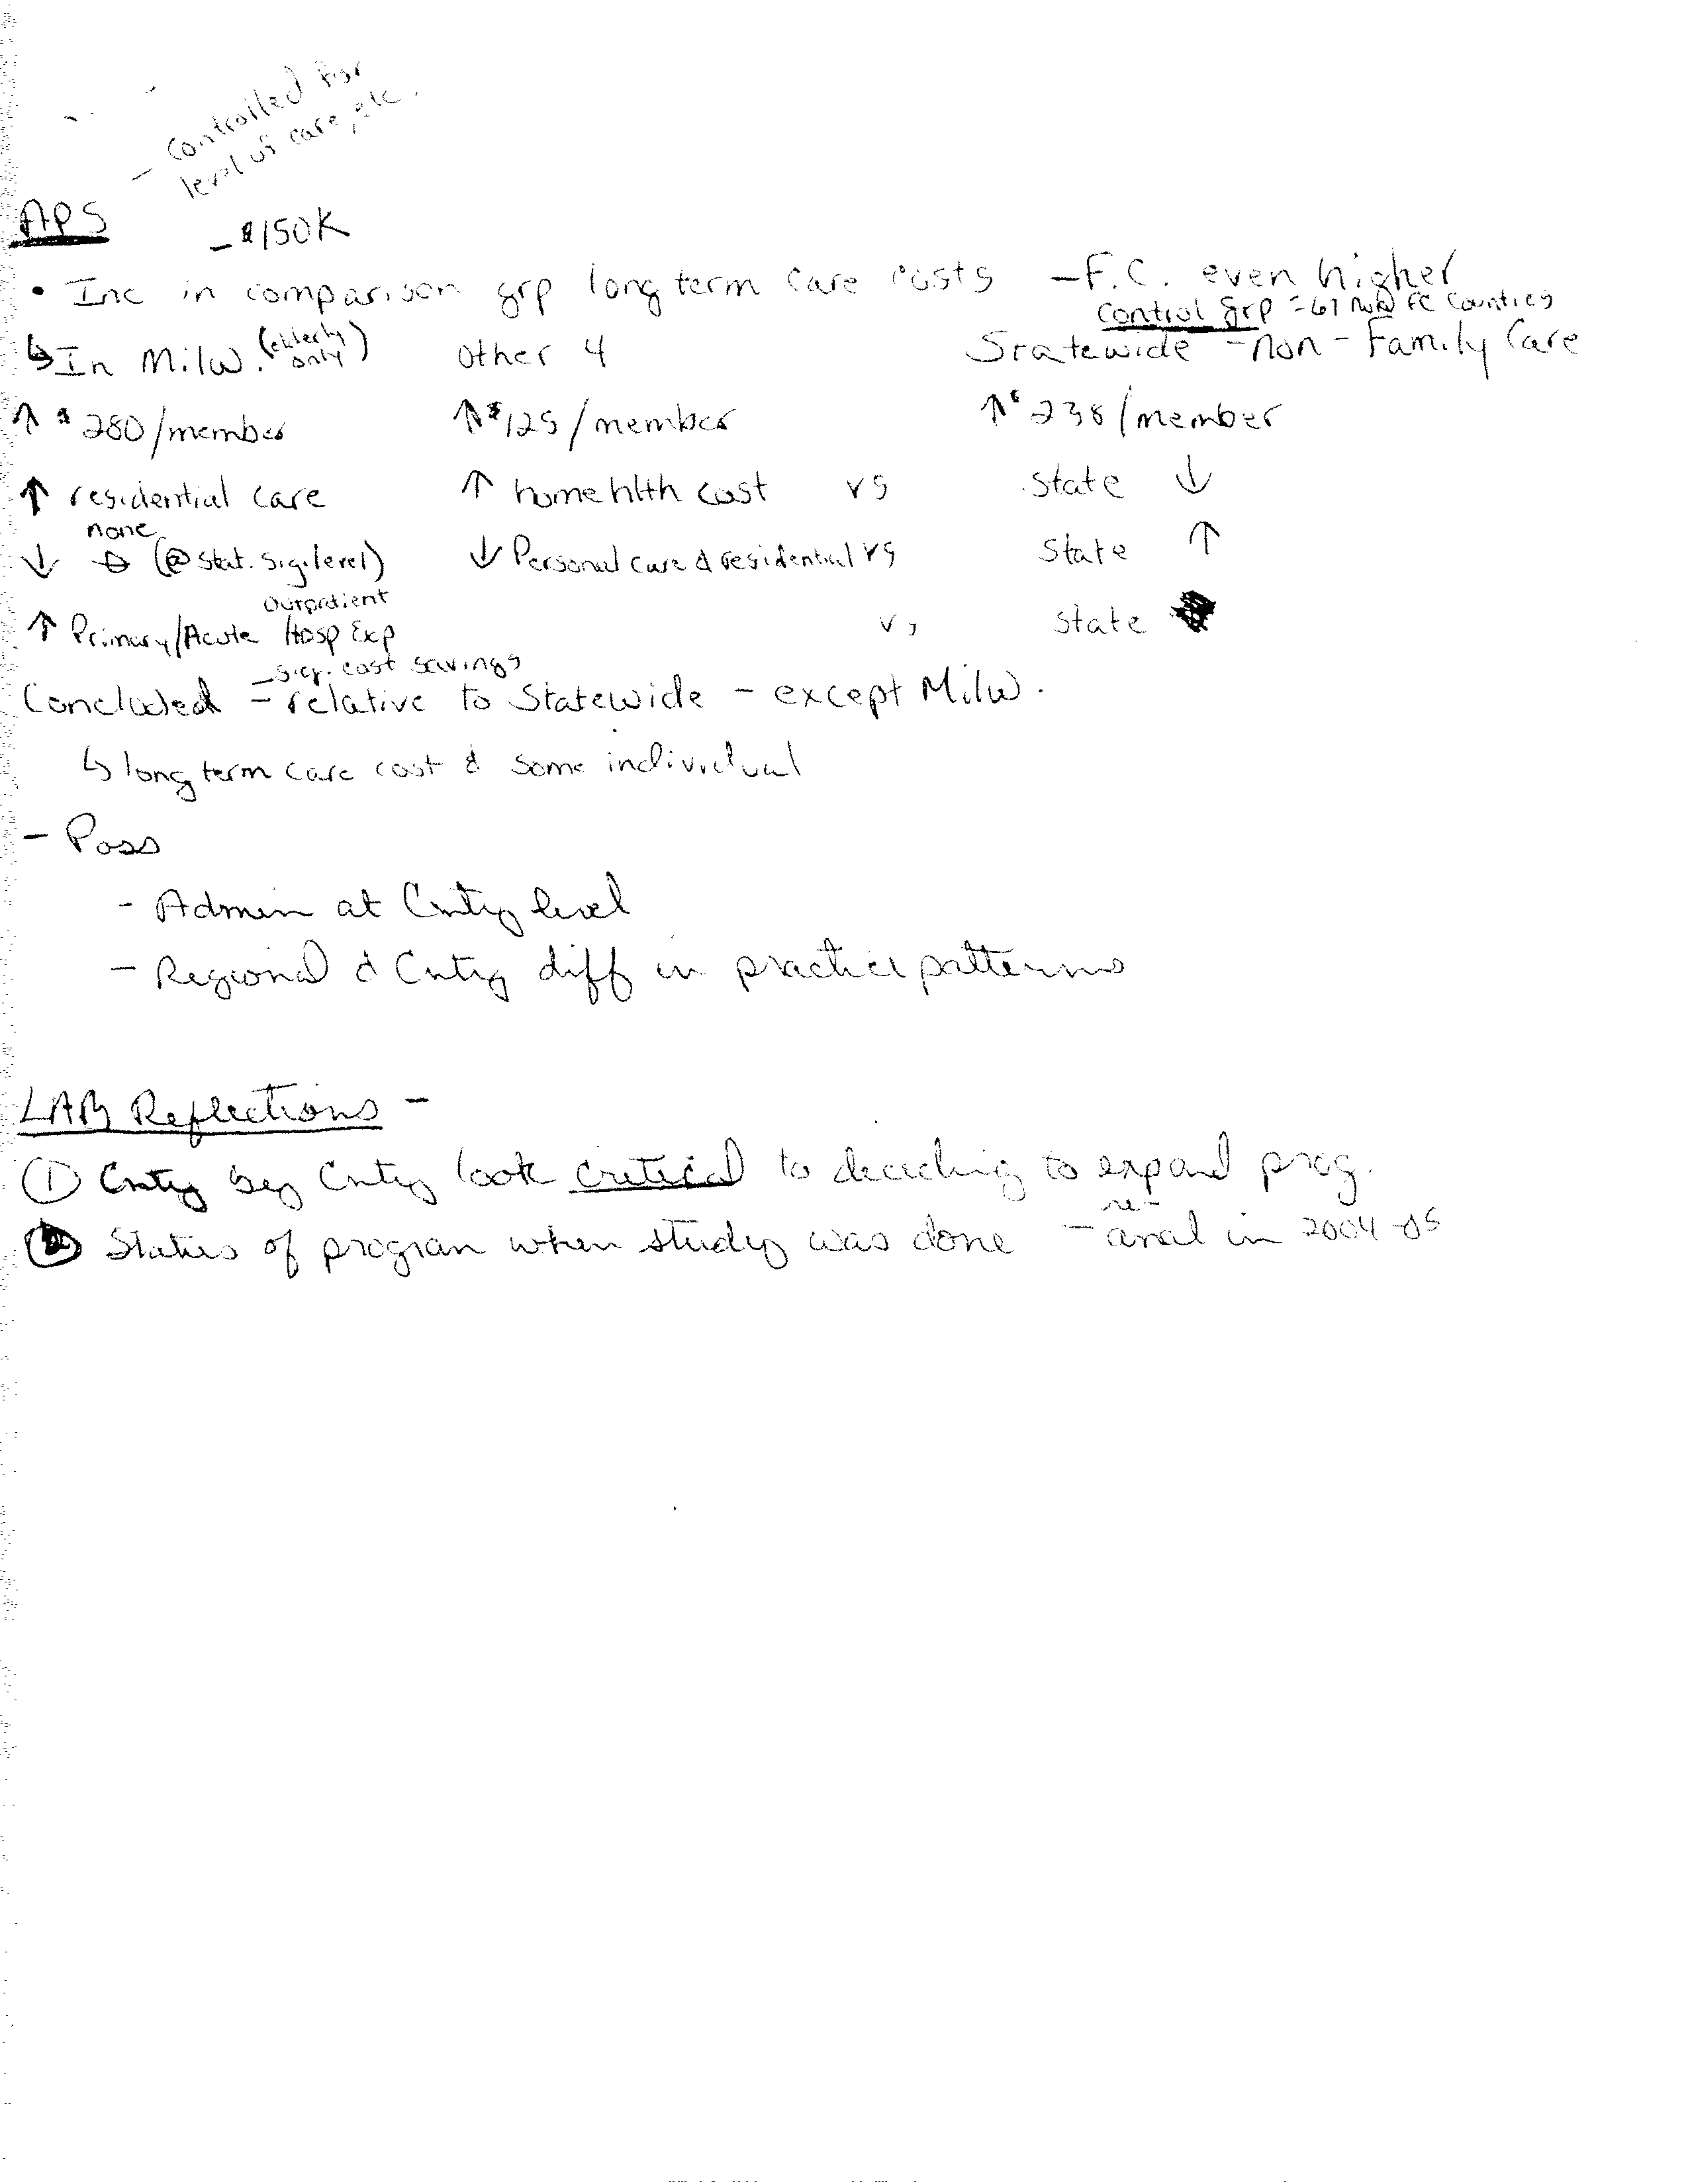 - Controlled for
level of care, etc.
APS - $150K
• Inc in comparison grp long term care costs - F.C. even higher
control grp = 67 non FC Counties
↳ In Milw. (elderly only) Other 4 Statewide - non-Family Care
↑ $280/member ↑ $125/member ↑ $238/member
↑ residential care ↑ home hlth cost vs State ↓
none
↓ (@ stat. sig. level) ↓ Personal care & residential vs State ↑
Outpatient
↑ Primary/Acute Hosp Exp vs State
- sig. cost savings
Concluded - relative to Statewide - except Milw.
↳ long term care cost & some individual
- Poss
- Admin at Cnty level
- Regional & Cnty diff in practice patterns
LAB Reflections -
① Cnty by Cnty look critical to deciding to expand prog.
re-
② Status of program when study was done - anal in 2004-05